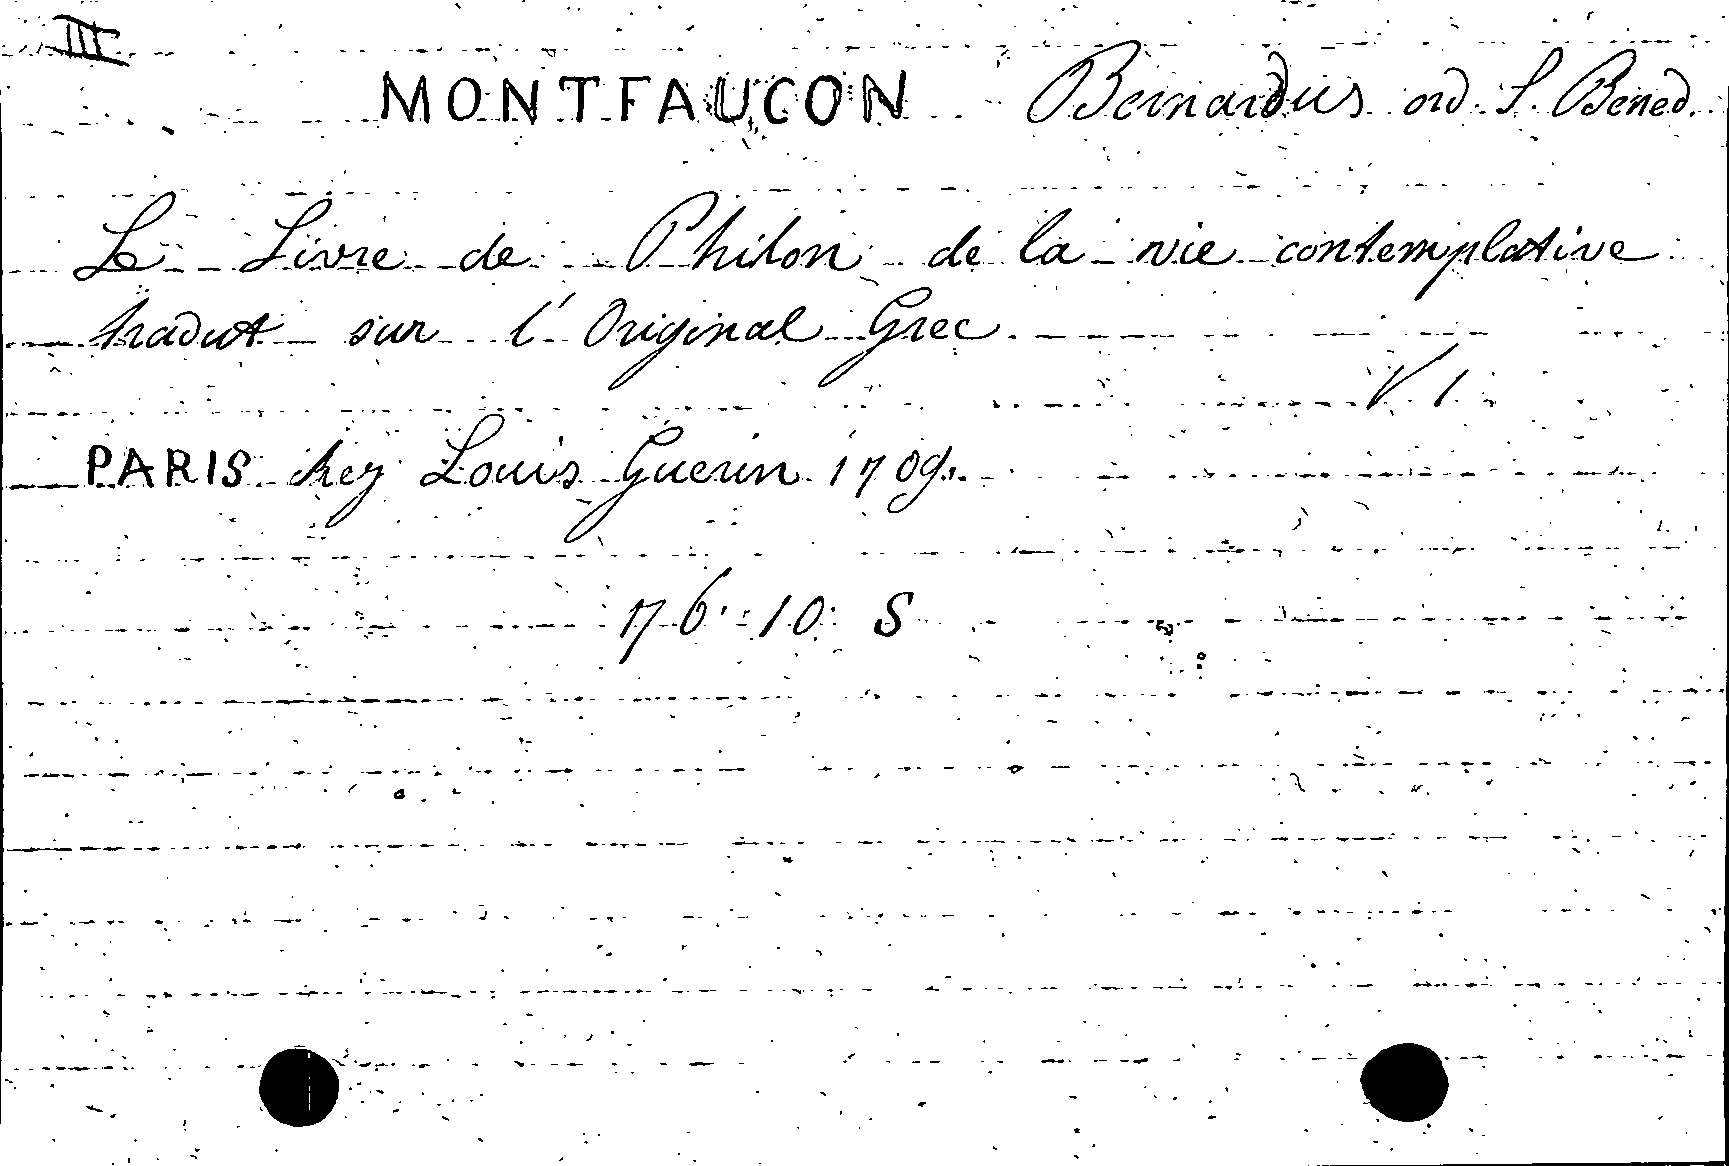 III
MONTFAUCON Bernardus ord. S. Bened.
Le Livre de Philon de la vie contemplative
traduit sur l'Original Grec.
V. 1.
PARIS chez Louis Guerin 1709.
76-10 S